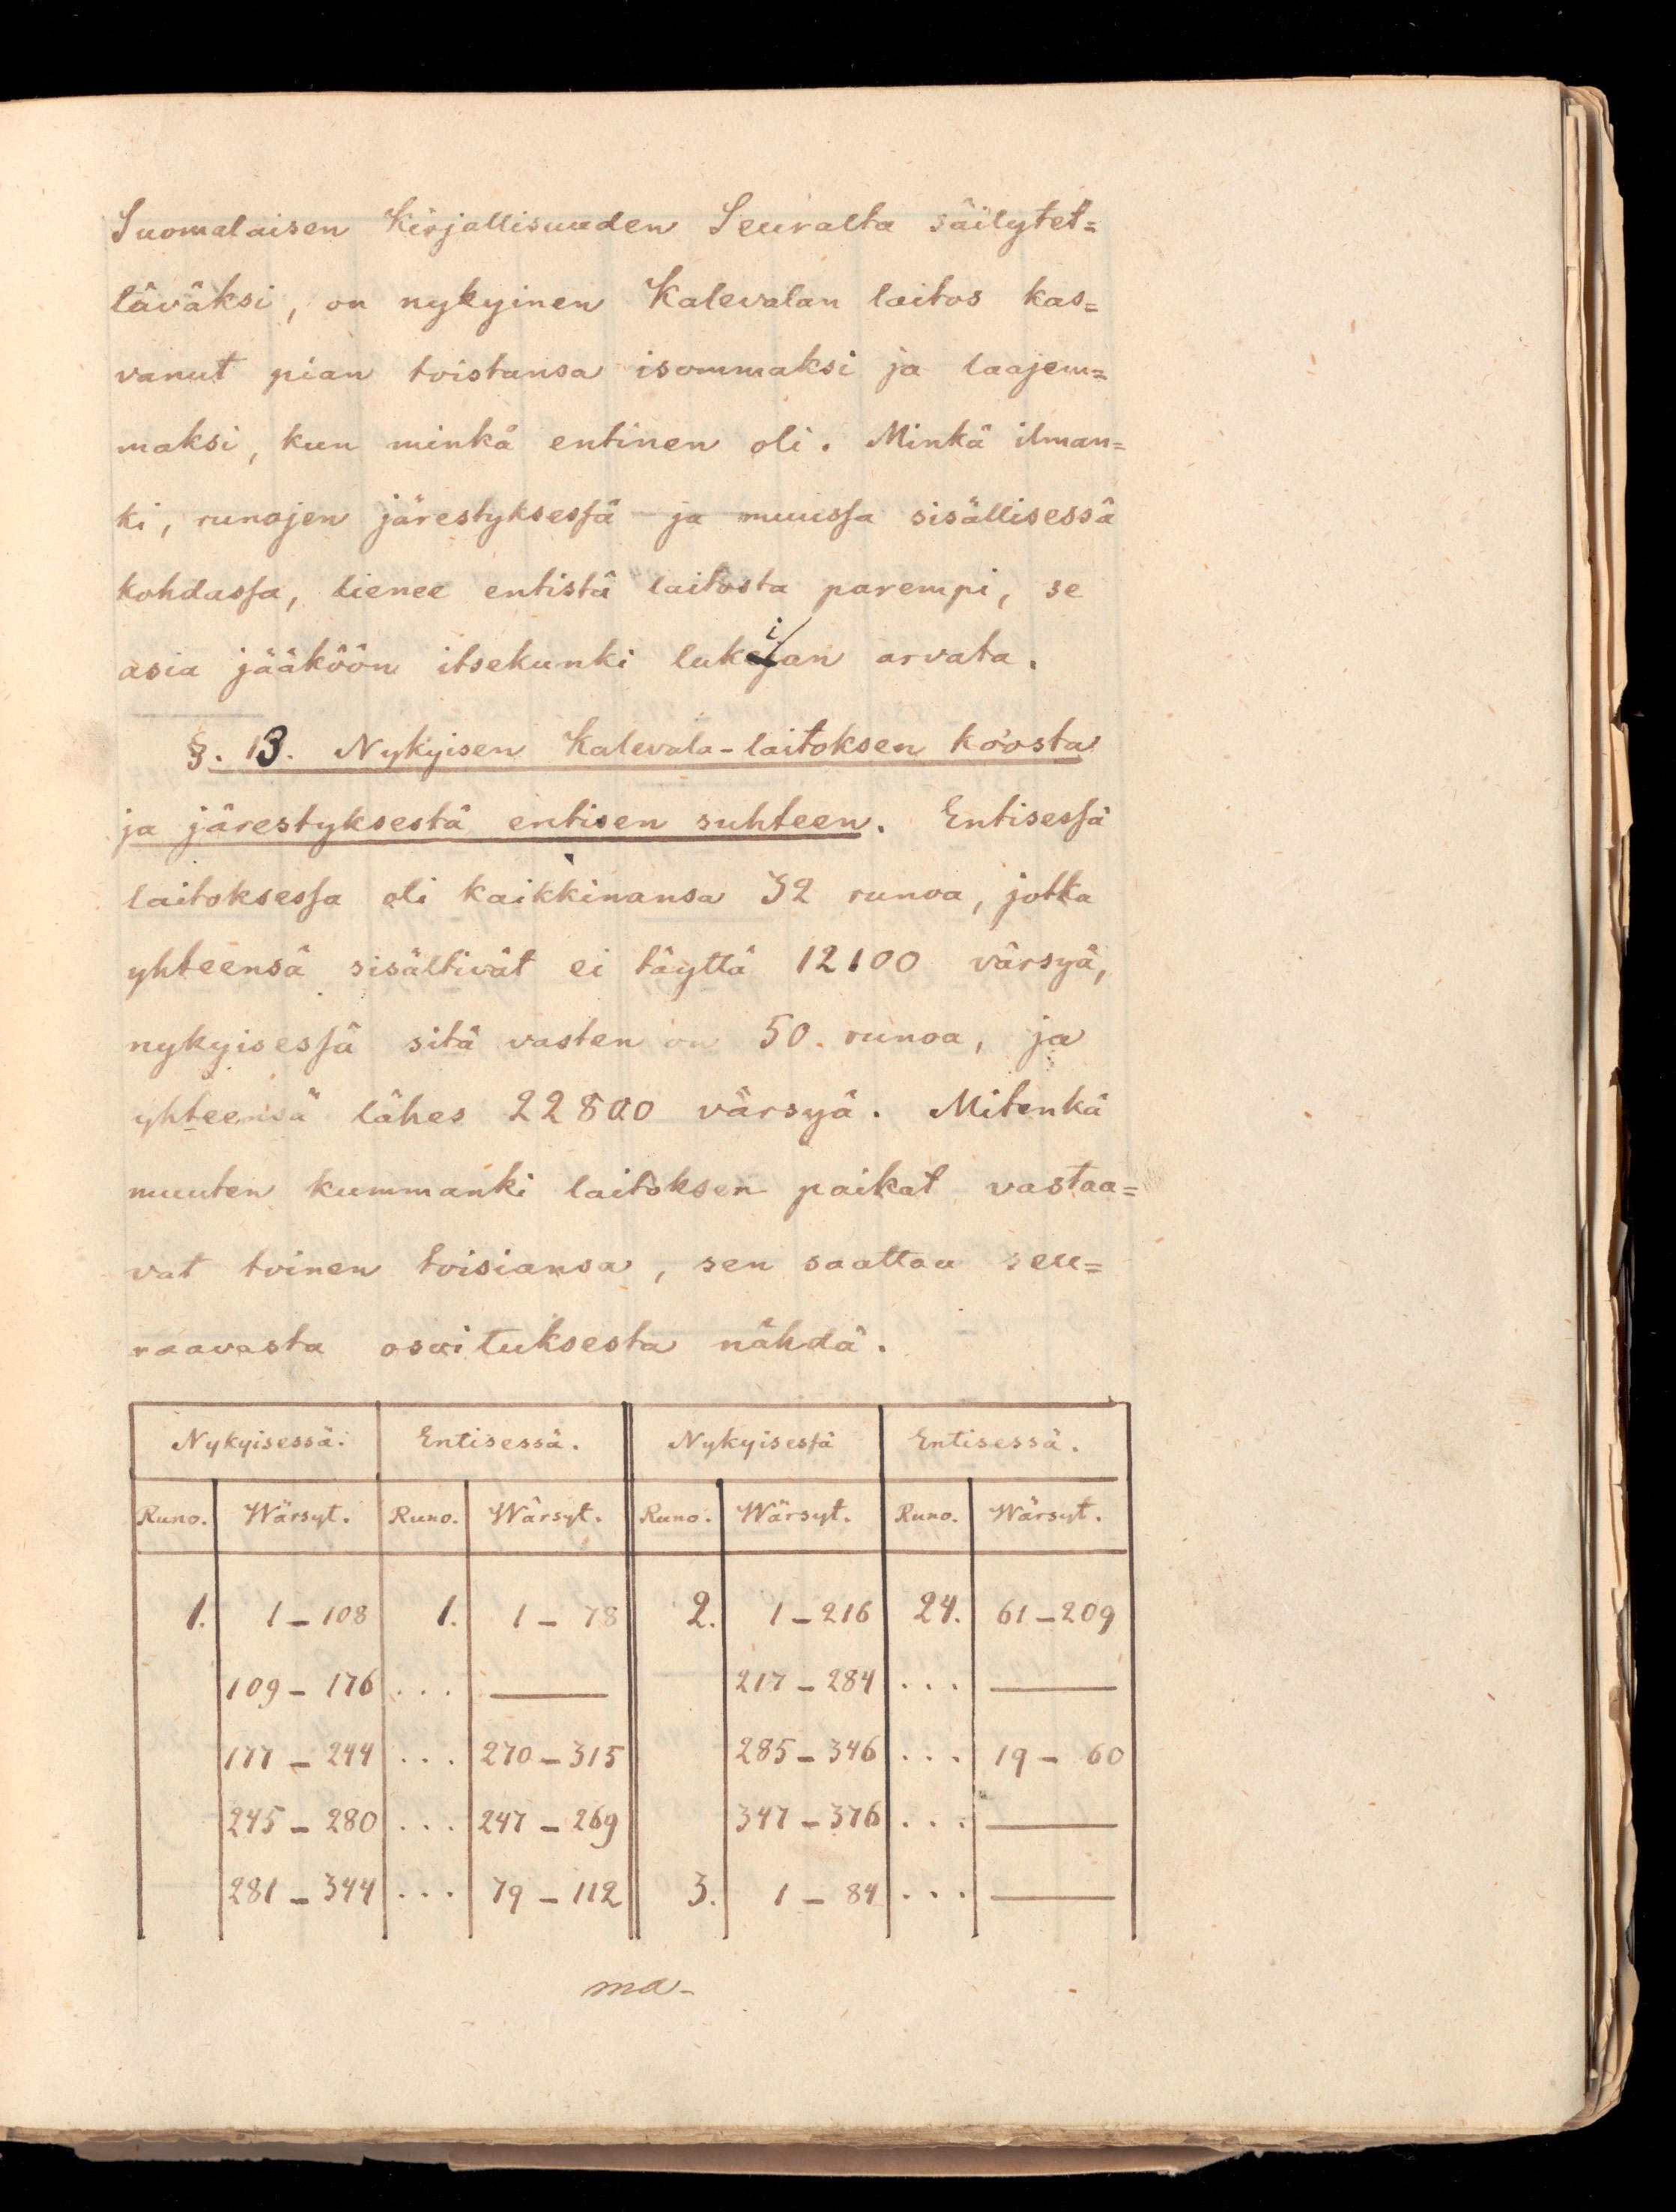 Suomalaisen Kirjallisuuden Seuralta säilytet=
täväksi, on nykyinen Kalevalan laitos kas=
vanut pian toistansa isommaksi ja laajem=
maksi, kun minkä entinen oli. Minkä ilman=
ki, runojen järestyksessä ja muussa sisällisessä
kohdassa, lienee entistä laitosta parempi, se
asia jääköön itsekunki lukian arvata.
§. 13. Nykyisen Kalevala-laitoksen koosta
ja järestyksestä entisen suhteen. Entisessä
laitoksessa oli kaikkinansa 32 runoa, jotka
yhteensä sisältivät ei täyttä 12100 värsyä,
nykyisessä sitä vasten on 50. runoa, ja
yhteensä lähes 22800 värsyä. Mitenkä
muuten kummanki laitoksen paikat vastaa=
vat toinen toisiansa, sen saattaa seu=
raavasta osoituksesta nähdä.
Nykyisessä. Entisessä. Nykyisessä Entisessä.
Runo. Wärsyt. Runo. Wärsyt. Runo. Wärsyt. Runo. Wärsyt.
1. 1–108 1. 1–78 2. 1–216 24. 61–209
109–176 ... —— 217–284 ... ——
177–244 ... 270–315 285–346 ... 19–60
245–280 ... 247–269 347–376 ... ——
281–344 ... 79–112 3. 1–84 ... ——
ma-